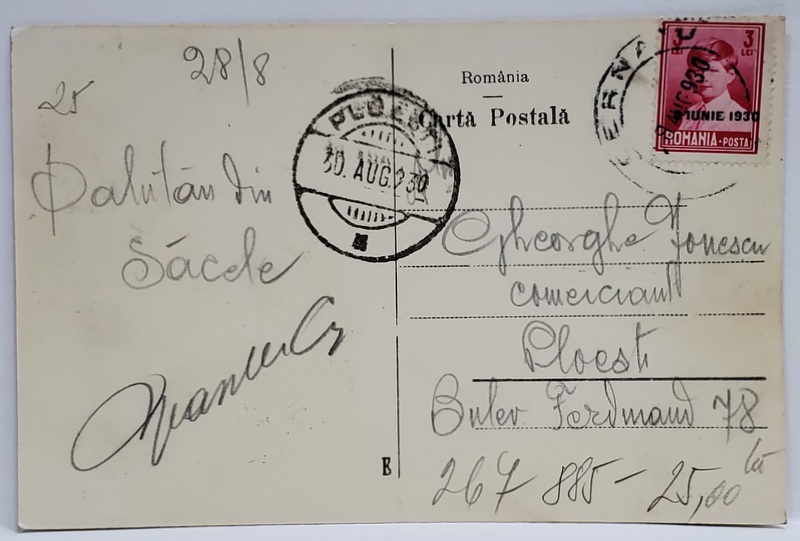 28/8
25
Salutări din
Săcele
România
Carta Postală
PLOEȘTI
30 AUG. 930
CERNATU
AUG 930
3 LEI 3 LEI
8 IUNIE 1930
ROMANIA-POSTA
Gheorghe Ionescu
comerciant
Ploesti
Bulev Ferdinand 78
267 885 - 25,00 lei
E